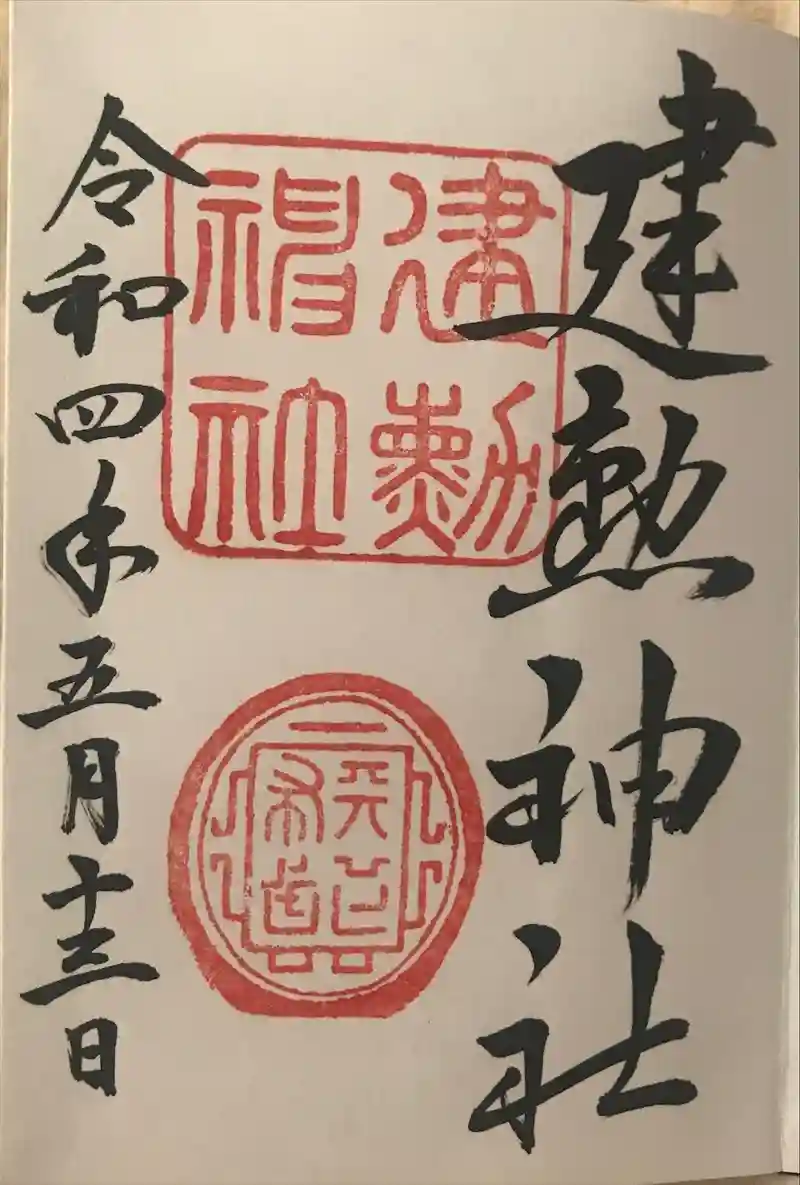 建勲神社
建勲
神社
天下布武
令和四年五月十三日